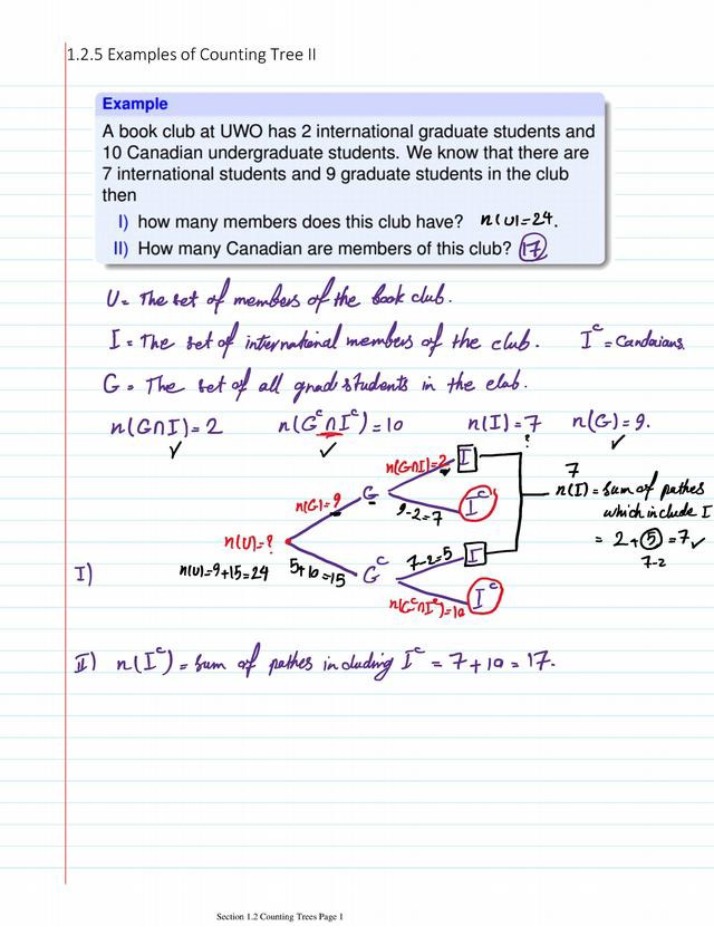 1.2.5 Examples of Counting Tree II
Example
A book club at UWO has 2 international graduate students and
10 Canadian undergraduate students. We know that there are
7 international students and 9 graduate students in the club
then
I) how many members does this club have? n(U)=24.
II) How many Canadian are members of this club? 17
U= The set of members of the book club.
I = The set of international members of the club. Iᶜ = Candaians.
G = The set of all grad students in the club.
n(G∩I)=2 n(Gᶜ∩Iᶜ)=10 n(I)=7 n(G)=9.
✓ ✓ ? ✓
n(G∩I)=2 I
7
n(G)=9 G
n(I) = sum of pathes
9-2=7 Iᶜ
which include I
n(U)=?
= 2+5=7✓
7-2
I) n(U)=9+15=24 5+10=15 Gᶜ 7-2=5 I
n(Gᶜ∩Iᶜ)=10 Iᶜ
II) n(Iᶜ) = sum of pathes including Iᶜ = 7+10=17.
Section 1.2 Counting Trees Page 1